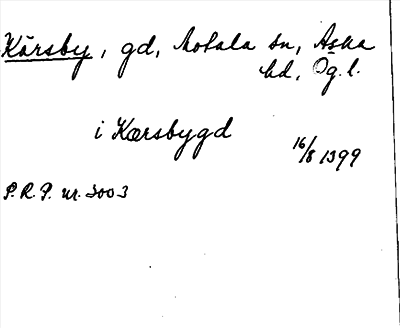 Kärsby, gd, Motala sn, Aska
hd, Ög. l.
i Kærsbygd
16/8 1399
P.R.P. nr. 3003